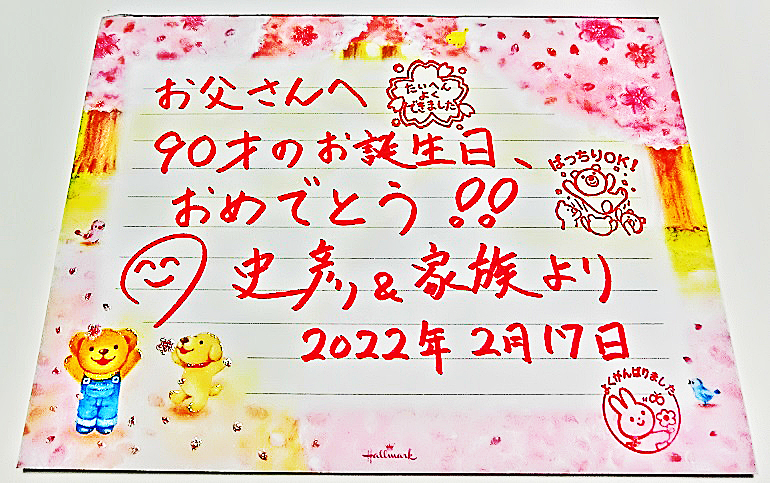 お父さんへ
たいへん
よく
できました
90才のお誕生日、
ばっちりOK!
おめでとう!!
史彦&家族より
2022年2月17日
よくがんばりました
Hallmark